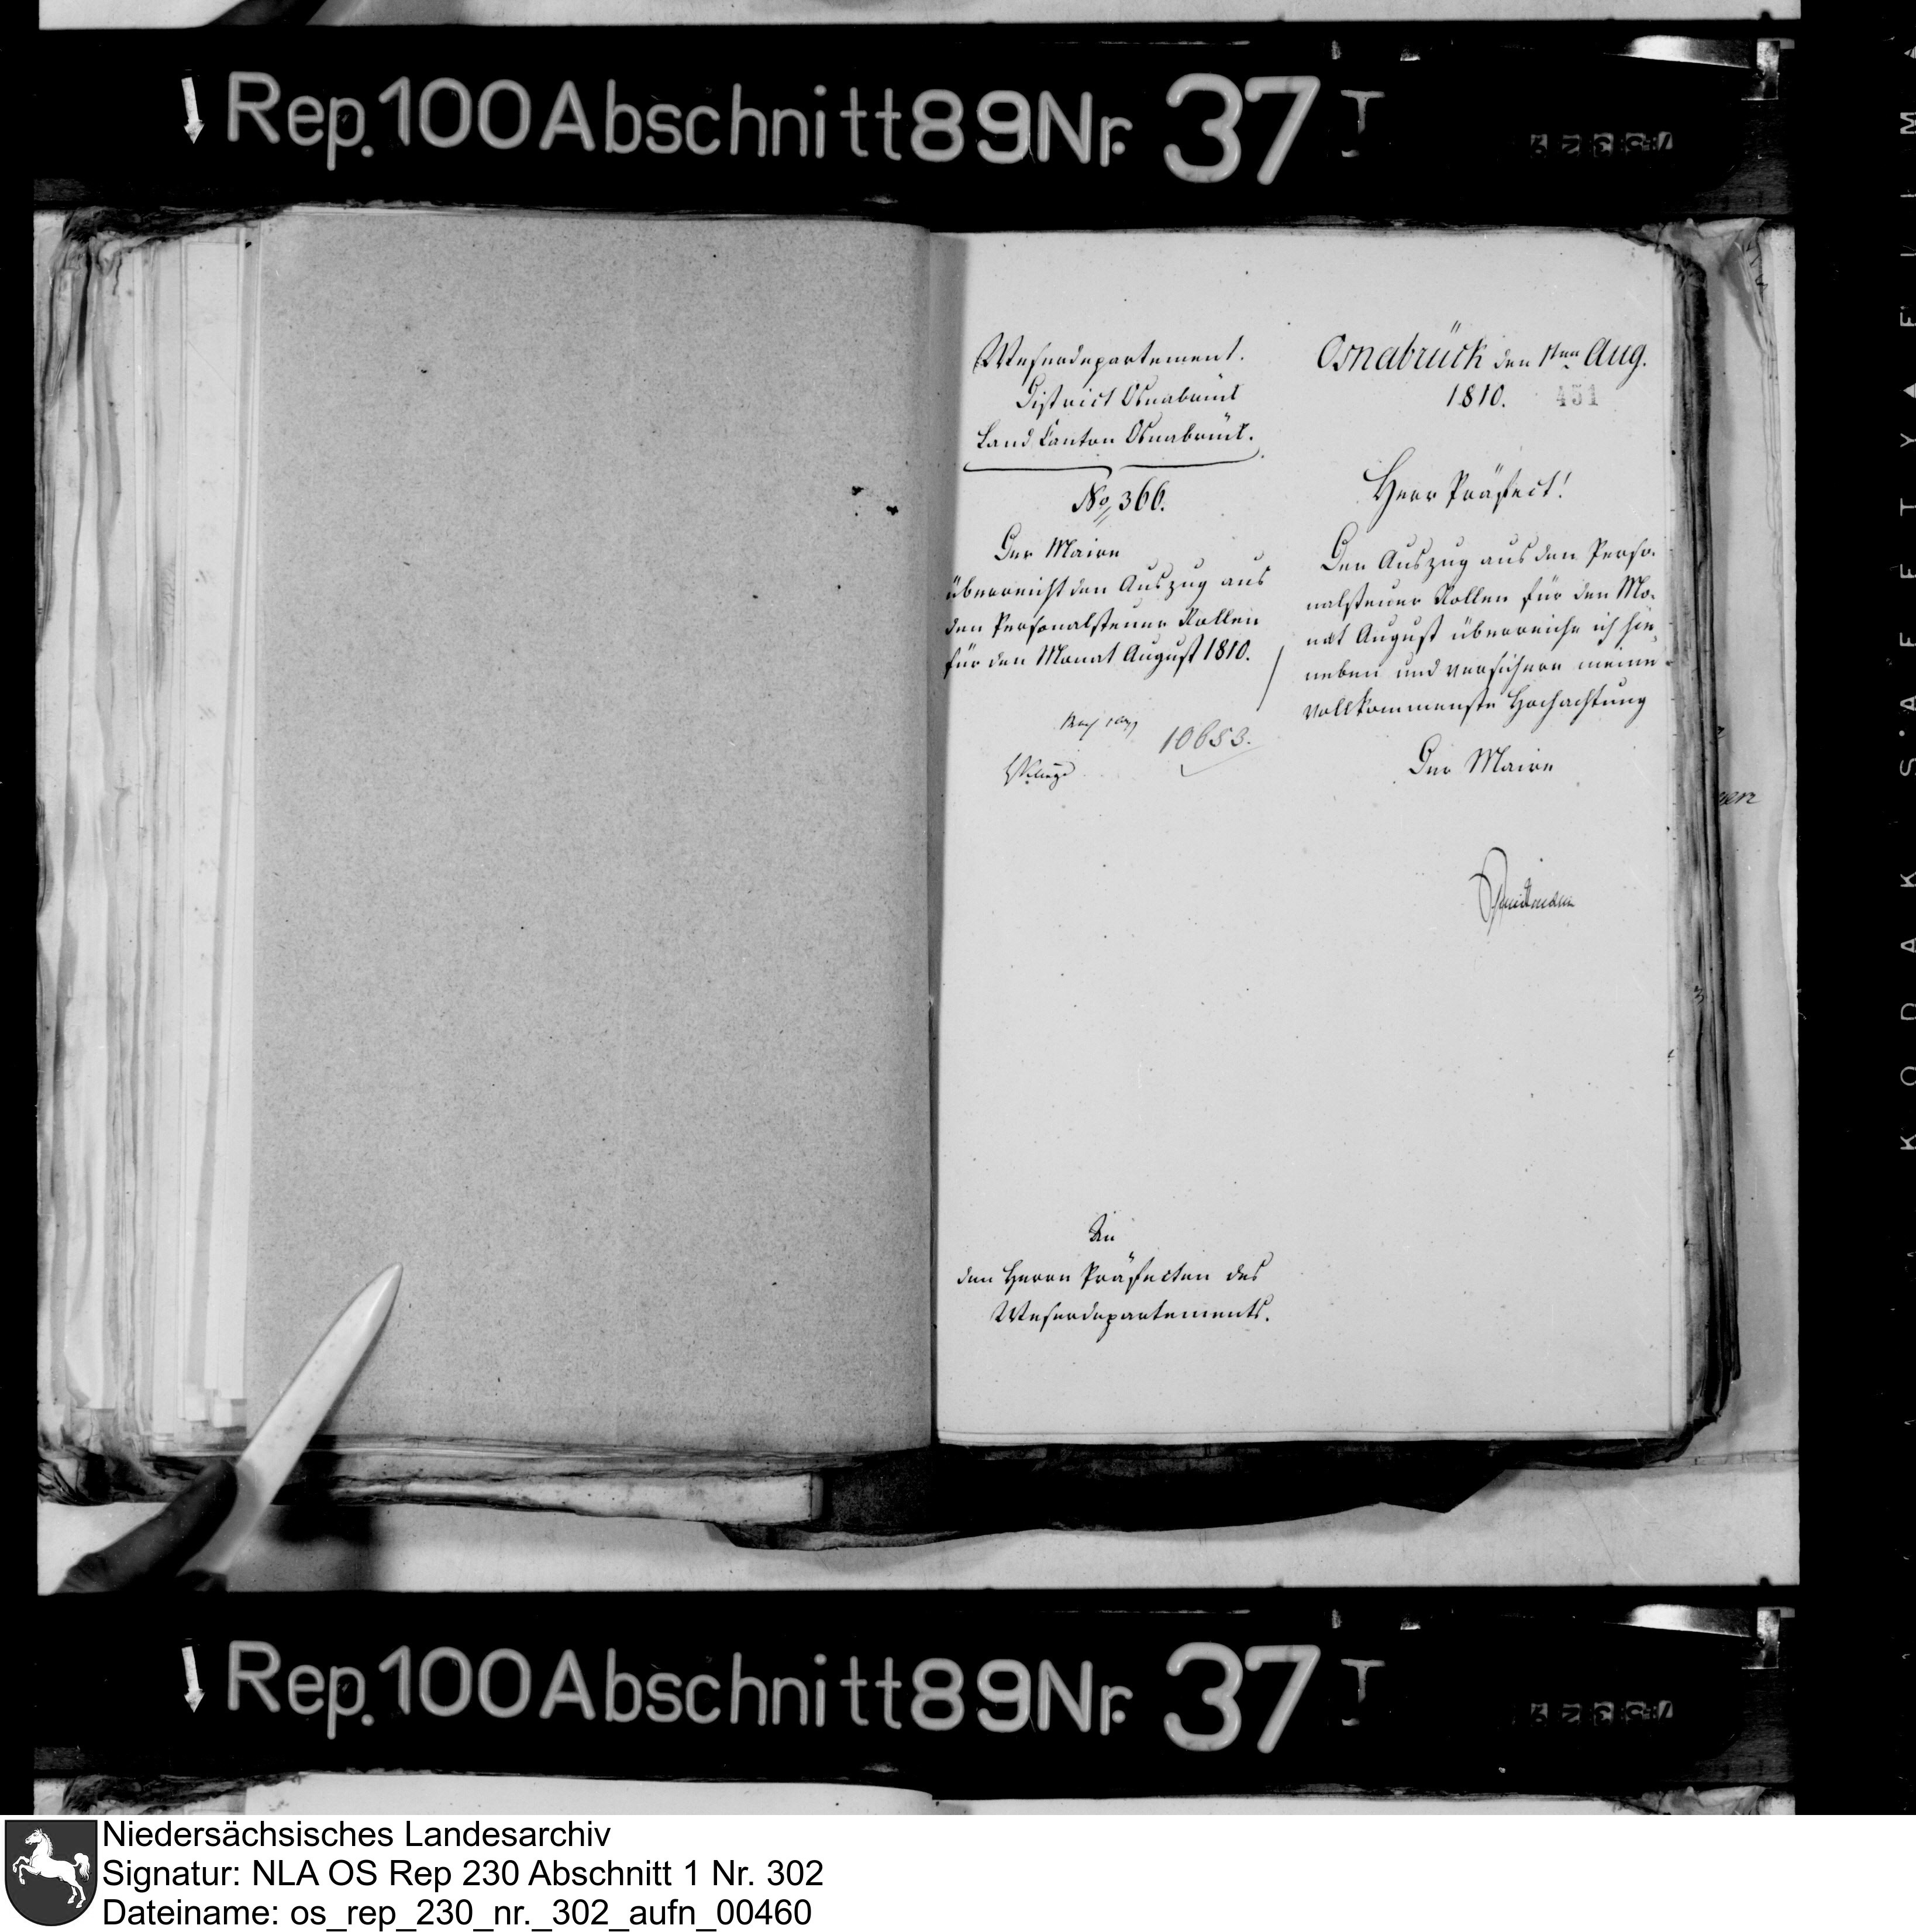 Rep. 100 Abschnitt 89 Nr. 37 I
Weserdepartement.
District Osnabrück
Land Canton Osnabrück.
No 366.
Der Maire
überreicht den Auszug aus
den Personalsteuer Rollen
für den Monat August 1810.
10653.
An
den Herrn Präfecten des
Weserdepartements.
Osnabrück den 1ten Aug.
1810. 451
Herr Präfect!
Den Auszug aus den Perso-
nalsteuer Rollen für den Mo-
nat August überreiche ich hie-
neben und versichere meine
vollkommenste Hochachtung
Der Maire
KODAK SAFETY FILM
Rep. 100 Abschnitt 89 Nr. 37 I
Niedersächsisches Landesarchiv
Signatur: NLA OS Rep 230 Abschnitt 1 Nr. 302
Dateiname: os_rep_230_nr._302_aufn_00460